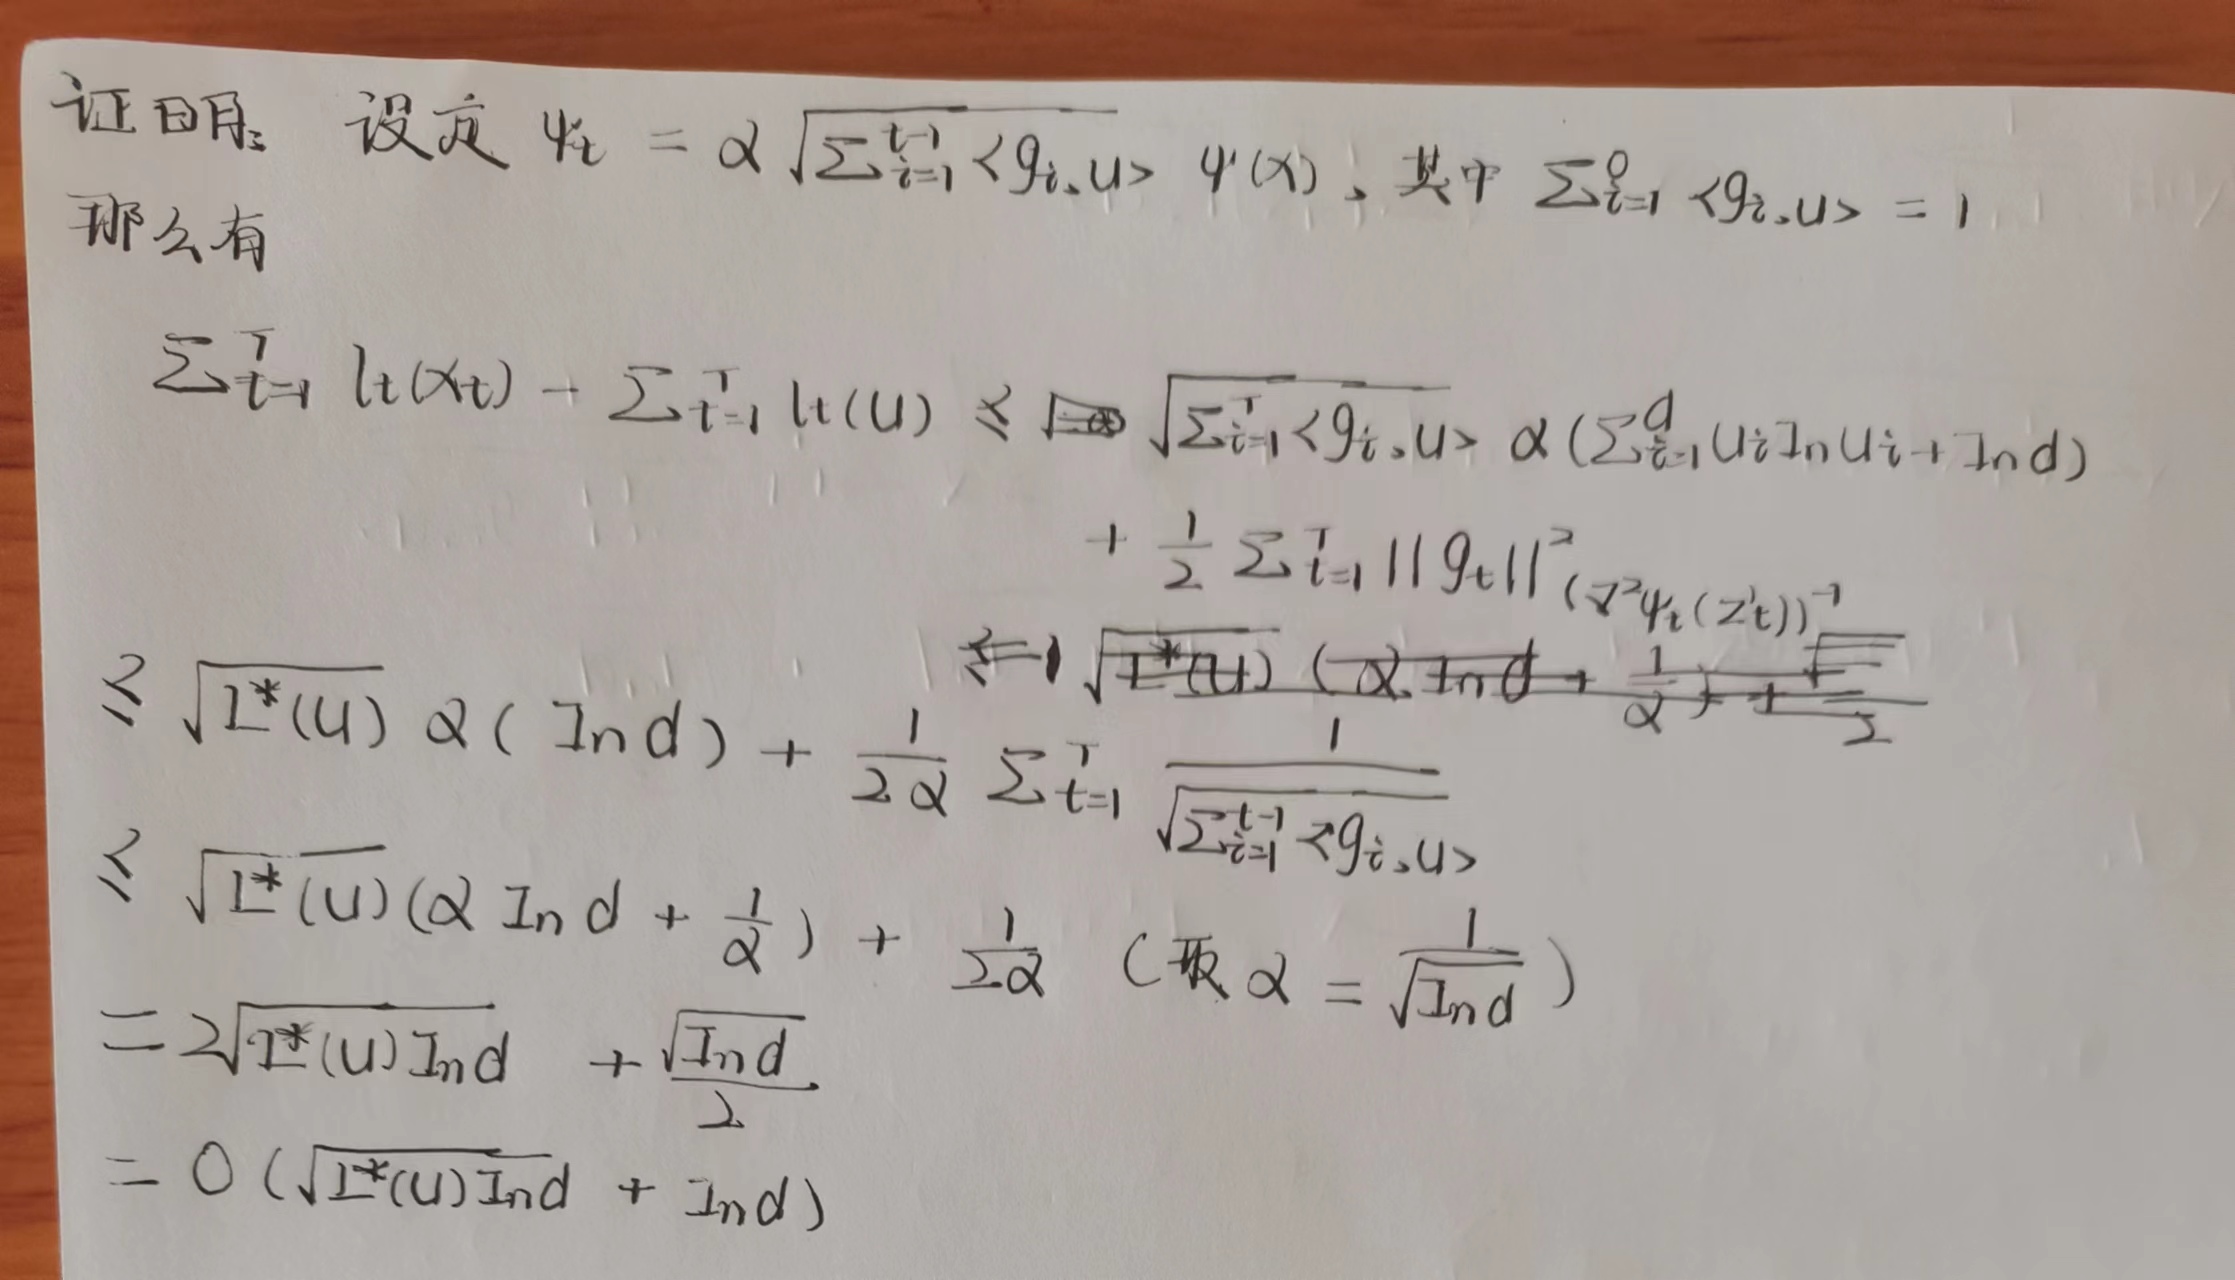 证明: 设定 ψ_t = α √(Σ_{i=1}^{t-1} <g_i, u>) ψ(x), 其中 Σ_{i=1}^{0} <g_i, u> = 1
那么有
Σ_{t=1}^{T} l_t(x_t) - Σ_{t=1}^{T} l_t(u) ≤ √(Σ_{i=1}^{T} <g_i, u>) α (Σ_{i=1}^{d} u_i ln u_i + ln d)
+ 1/2 Σ_{t=1}^{T} ||g_t||²_{(∇²ψ_t(z't))^{-1}}
≤ √(L*(u)) α ( ln d ) + 1/(2α) Σ_{t=1}^{T} 1/√(Σ_{i=1}^{t-1} <g_i, u>)
≤ √(L*(u)) (α ln d + 1/α) + 1/(2α) (取 α = 1/√(ln d))
= 2√(L*(u) ln d) + √(ln d)/2
= O (√(L*(u) ln d) + ln d)